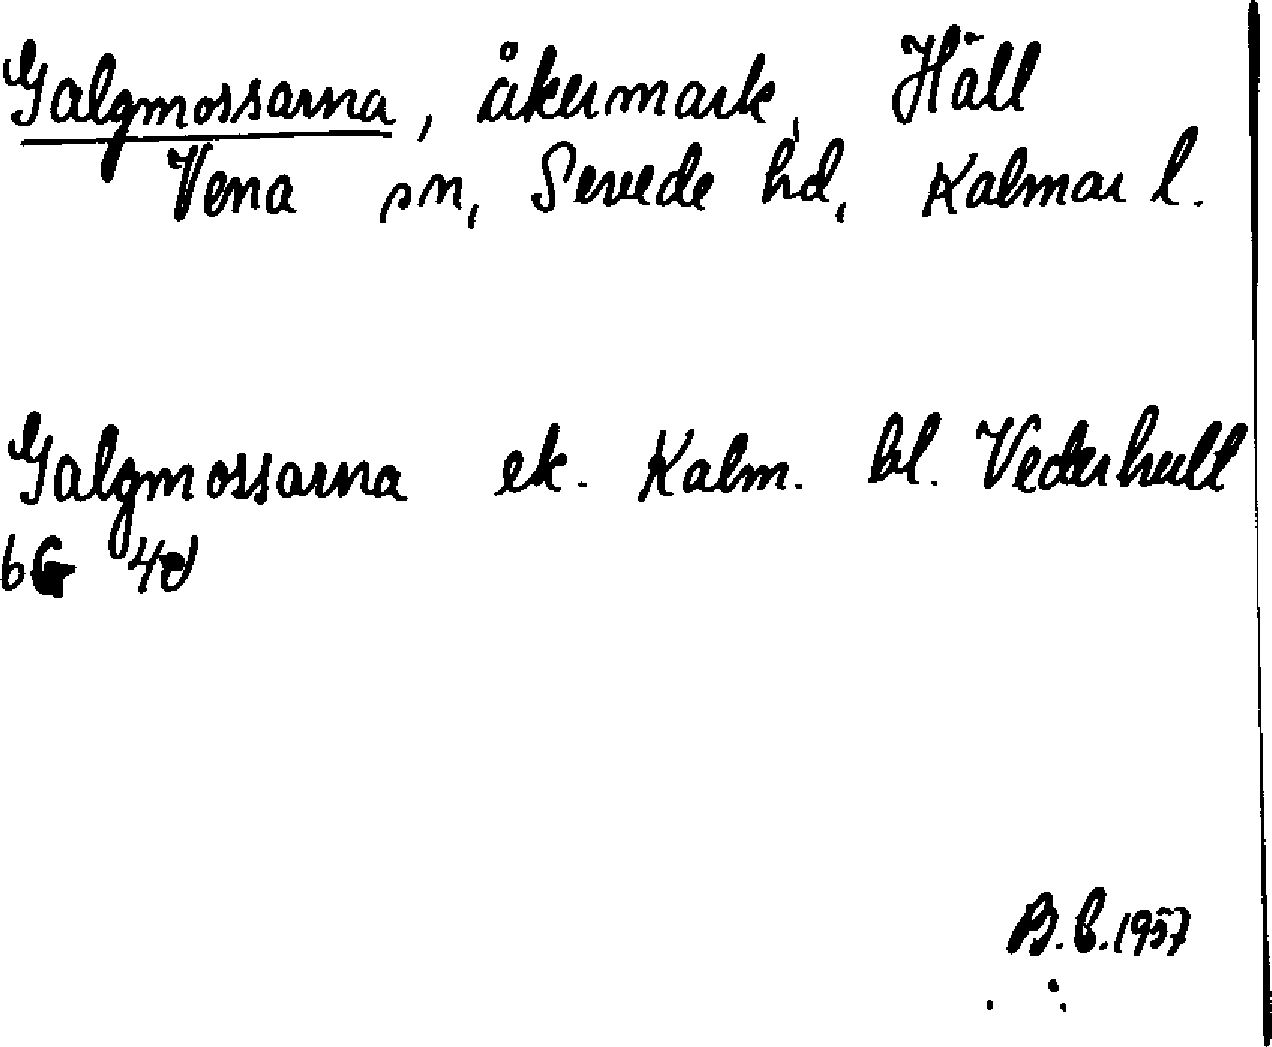 Galgmossarna, åkermark, Häll
Vena sn, Sevede hd, Kalmar l.
Galgmossarna ek. Kalm. bl. Vederhult
6G 4d
B.C. 1957